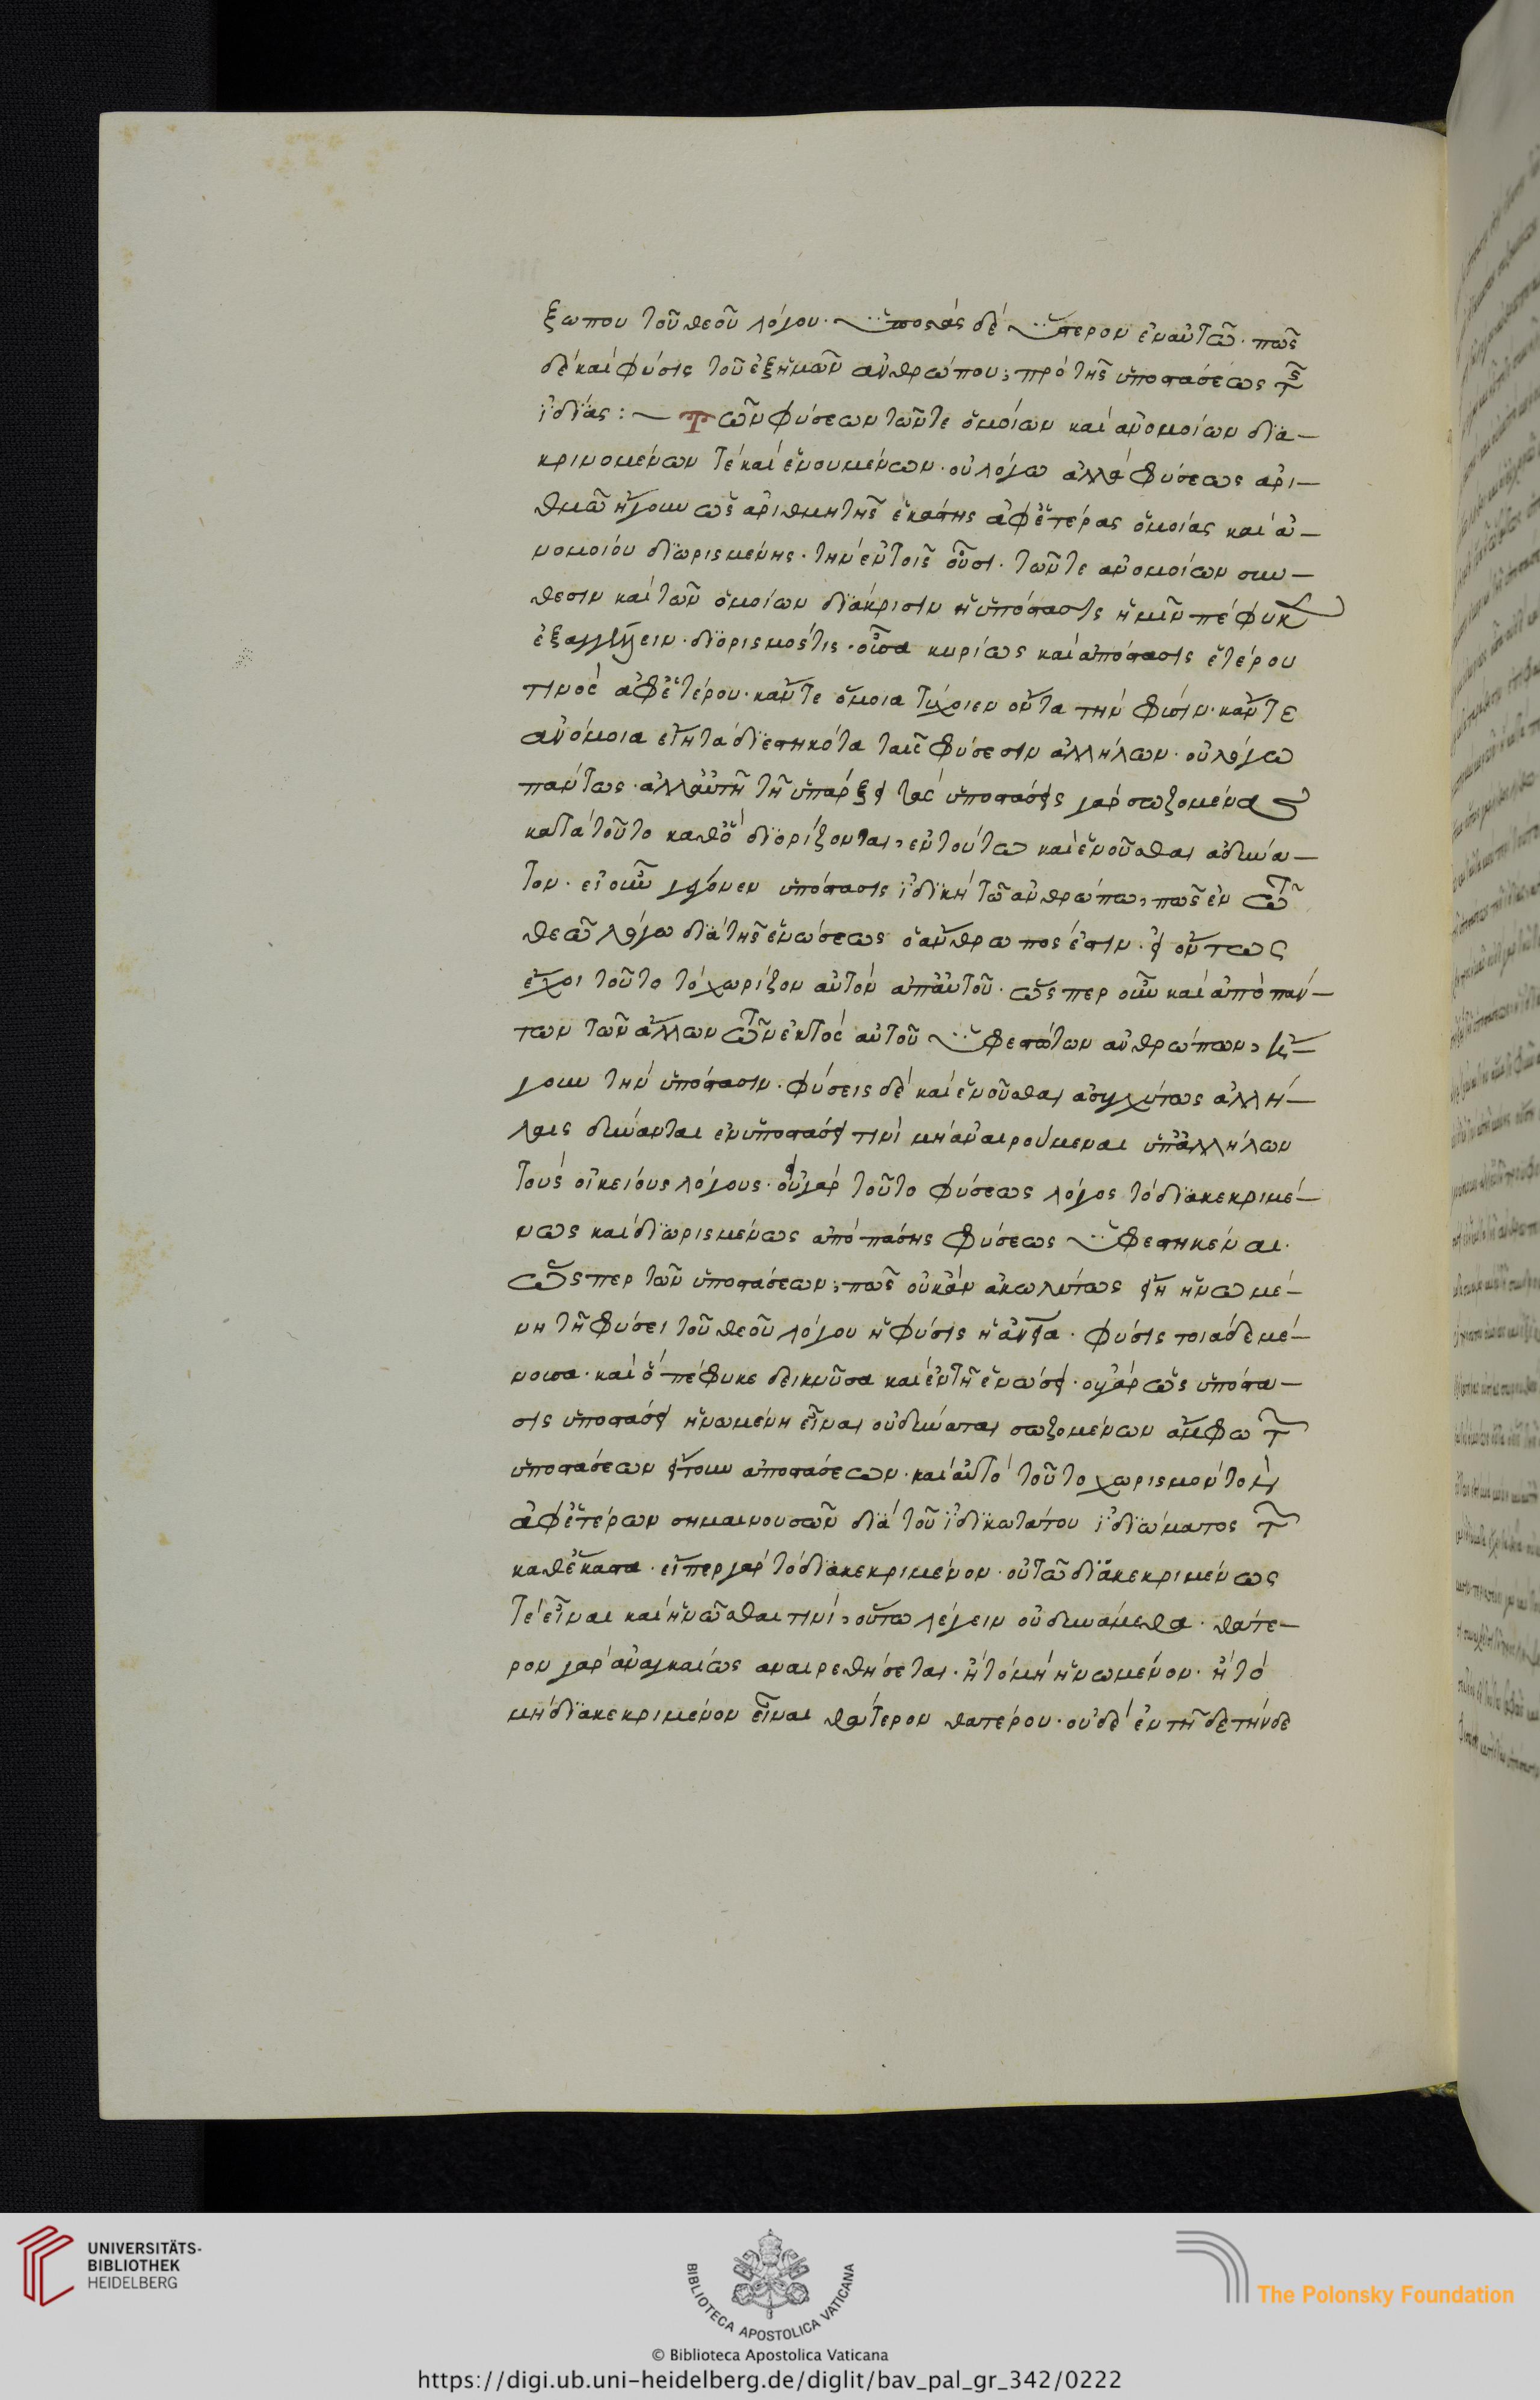 ξώπου τοῦ θεοῦ λόγου· ὑποστὰς δὲ ὕστερον ἐν αὐτῶ· πῶς
δὲ καὶ φύσις τοῦ ἐξ ἡμῶν ἀνθρώπου; πρὸ τῆς ὑποστάσεως τῆς
ἰδίας: Τῶν φύσεων τῶν τε ὁμοίων καὶ ἀνομοίων δια-
κρινομένων τὲ καὶ ἑνουμένων· οὐ λόγω ἀλλὰ φύσεως ἀρι-
θμῶ ἤγουν ὡς ἀριθμητῆς ἑκάστης ἀφ' ἑτέρας ὁμοίας καὶ ἀ-
νομοίου διωρισμένης· τὴν ἐν τοῖς οὖσι· τῶν τε ἀνομοίων συν-
θεσιν καὶ τῶν ὁμοίων διάκρισιν ἡ ὑπόστασις ἡμῖν πέφυκ
ἐξαγγέλλειν· διορισμός τις· οὖσα κυρίως καὶ ἀπόστασις ἑτέρου
τινὸς ἀφ' ἑτέρου· κἄν τε ὅμοια τύχοιεν ὄντα τὴν φύσιν· κἄν τε
ἀνόμοια εἴη τὰ διεστηκότα ταῖς φύσεσιν ἀλλήλων· οὐ λόγω
πάντως· ἀλλ' αὐτῆ τῆ ὑπάρξει τὰς ὑποστάσεις γὰρ σωζομένας
κατὰ τοῦτο καθ' ὃ διορίζονται, ἐν τούτω καὶ ἑνοῦσθαι ἀδύνα-
τον· εἰ οὖν γέγονεν ὑπόστασις ἰδικὴ τῶ ἀνθρώπω, πῶς ἐν τῶ
θεῶ λόγω διὰ τῆς ἑνώσεως ὁ ἄνθρωπός ἐστιν· εἰ οὕτως
ἔχοι τοῦτο τὸ χωρίζον αὐτὸν ἀπ' αὐτοῦ· ὥσπερ οὖν καὶ ἀπὸ πάν-
των τῶν ἄλλων τῶν ἐκτὸς αὐτοῦ ὑφεστώτων ἀνθρώπων, ἤ-
γουν τὴν ὑπόστασιν· φύσεις δὲ καὶ ἑνοῦσθαι ἀσυγχύτως ἀλλή-
λαις δύνανται ἐν ὑποστάσει τινὶ μὴ ἀναιρούμεναι ὑπ' ἀλλήλων
τοὺς οἰκείους λόγους· οὐ γὰρ τοῦτο φύσεως λόγος τὸ διακεκριμέ-
νως καὶ διωρισμένως ἀπὸ πάσης φύσεως ὑφεστηκέναι·
ὥσπερ τῶν ὑποστάσεων; πῶς οὐκ ἂν ἀκωλύτως εἴη ἡνωμέ-
νη τῆ φύσει τοῦ θεοῦ λόγου ἡ φύσις ἡ αὐτὰ· φύσις τοιάδε μέ-
νουσα· καὶ ὃ πέφυκε δεικνῦσα καὶ ἐν τῆ ἑνώσει· οὐ γὰρ ὡς ὑπόστα-
σις ὑποστάσει ἡνωμένη εἶναι οὐ δύναται σωζομένων ἄμφω τῶν
ὑποστάσεων εἴτουν ἀποστάσεων· καὶ αὐτὸ τοῦτο χωρισμὸν τὸν
ἀφ' ἑτέρων σημαινουσῶν διὰ τοῦ ἰδικωτάτου ἰδιώματος τῶν
καθ' ἕκαστα· εἴπερ γὰρ τὸ διακεκριμένον· οὐ τῶ διακεκριμένως
τὲ εἶναι καὶ ἡνῶσθαι τινὶ, οὕτω λέγειν οὐ δυνάμεθα· θάτε-
ρον γὰρ ἀναγκαίως ἀναιρεθήσεται· ἢ τὸ μὴ ἡνωμένον· ἢ τὸ
μὴ διακεκριμένον εἶναι θάτερον θατέρου· οὐδὲ ἐν τῆδε τήνδε
UNIVERSITÄTS-
BIBLIOTHEK
HEIDELBERG
BIBLIOTECA APOSTOLICA VATICANA
The Polonsky Foundation
© Biblioteca Apostolica Vaticana
https://digi.ub.uni-heidelberg.de/diglit/bav_pal_gr_342/0222